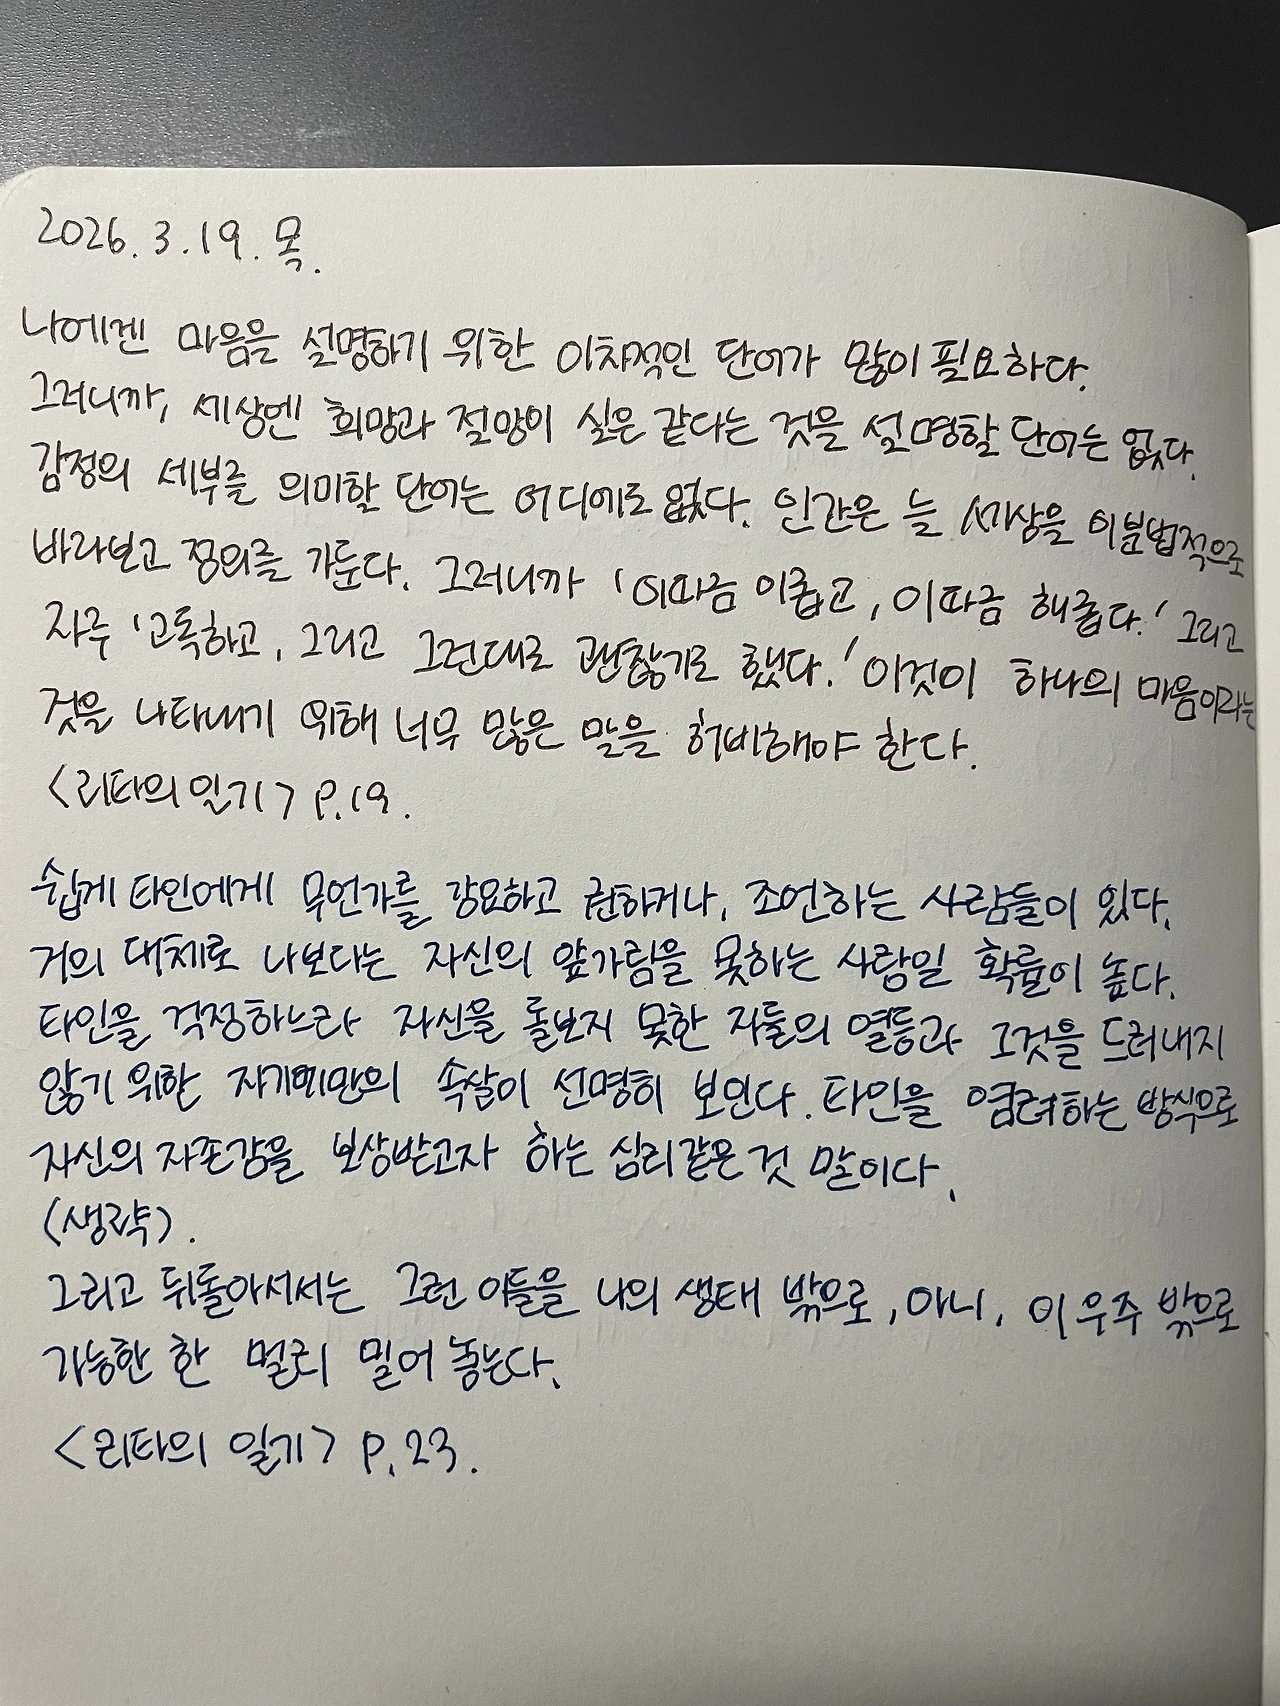 2026. 3. 19. 목.
나에겐 마음을 설명하기 위한 이차적인 단어가 많이 필요하다.
그러니까, 세상엔 희망과 절망이 실은 같다는 것을 설명할 단어는 없다.
감정의 세부를 의미할 단어는 어디에도 없다. 인간은 늘 세상을 이분법적으로
바라보고 정의를 가둔다. 그러니까 '이따금 이롭고, 이따금 해롭다.' 그리고
자주 '고독하고, 그리고 그런대로 괜찮기도 했다.' 이것이 하나의 마음이라는
것을 나타내기 위해 너무 많은 말을 허비해야 한다.
<리타의 일기> p.19.
쉽게 타인에게 무언가를 강요하고 권하거나, 조언하는 사람들이 있다.
거의 대체로 나보다는 자신의 앞가림을 못하는 사람일 확률이 높다.
타인을 걱정하느라 자신을 돌보지 못한 자들의 열등과 그것을 드러내지
않기 위한 자기기만의 속살이 선명히 보인다. 타인을 염려하는 방식으로
자신의 자존감을 보상받고자 하는 심리같은 것 말이다.
(생략).
그리고 뒤돌아서서는 그런 이들을 나의 생태 밖으로, 아니, 이 우주 밖으로
가능한 한 멀리 밀어 놓는다.
<리타의 일기> p.23.